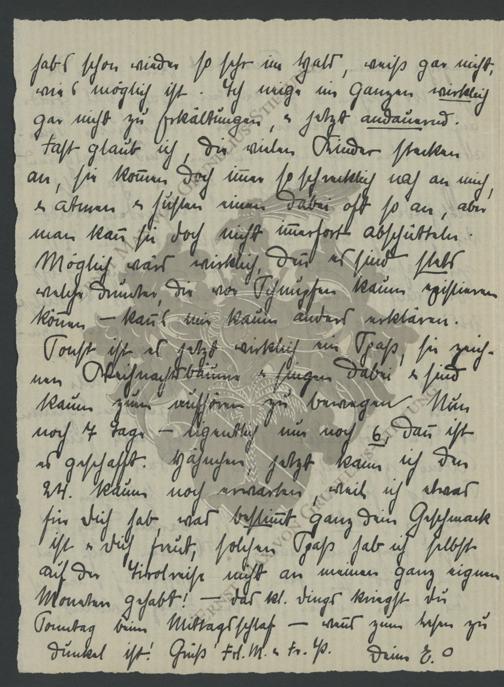 hab's schon wieder so sehr im Hals, weiß gar nicht,
wie's möglich ist. Ich neige im Ganzen wirklich
gar nicht zu Erkältungen, u jetzt andauernd.
Fast glaub ich, die vielen Kinder stecken
an, sie kommen doch immer so schrecklich nah an mich,
u atmen u husten einen dabei oft so an, aber
man kann sie doch nicht immerfort abschütteln.
Möglich wärs wirklich, denn es sind stets
welche drunter, die vor Schnupfen kaum existieren
können – kann's mir kaum anders erklären.
Sonst ist es jetzt wirklich ein Spaß, sie zeich-
nen Weihnachtsbäume u singen dabei u sind
kaum zum aufhören zu bewegen. Nun
noch 7 Tage – eigentlich nur noch 6, dann ist
es geschafft. jetzt kann ich den
24. kaum noch erwarten weil ich etwas
für Dich hab, was bestimmt ganz dein Geschmack
ist u Dich freut, solchen Spaß hab ich selbst
auf der Tirolreise nicht an meinen ganz eignen
Moneten gehabt! – das kl. Dings kriegst du
Sonntag beim Mittagsschlaf – wenns zum Lesen zu
dunkel ist! Gruß Frl. M. u Fr.
Deine E.